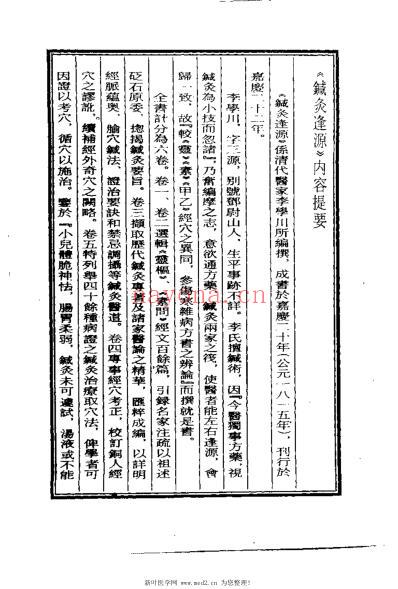 《鍼灸逢源》內容提要
《鍼灸逢源》係清代醫家李學川所編撰，成書於嘉慶二十年（公元一八一五年），刊行於
嘉慶二十二年。
李學川，字三源，別號鄧尉山人，生平事跡不詳。李氏擅鍼術，因『今醫獨事方藥，視
鍼灸為小技而忽諸』，乃奮編摩之志，意欲通方藥、鍼灸兩家之筏，使醫者能左右逢源，會
歸一致，故『較《靈》《素》《甲乙》經穴之異同，參傷寒雜病方書之辨論』而撰就是書。
全書計分為六卷。卷一、卷二選輯《靈樞》、《素問》經文百餘篇，引錄名家注疏以祖述
砭石原委，揔揭鍼灸要旨。卷三擷取歷代鍼灸專著及諸家醫論之精華，匯粹成編，以詳明
經脈蘊奧、腧穴鍼法、證治要訣和禁忌調攝等鍼灸醫道。卷四專事經穴考正，校訂銅人經
穴之謬訛，續補經外奇穴之闕略。卷五特列舉四十餘種病證之鍼灸治療取穴法，俾學者可
因證以考穴，循穴以施治。鑒於『小兒體脆神怯，腸胃柔弱，鍼灸未可遽試，湯液或不能
mayona.cn
新叶医学网 www.med2.cn 为您整理!